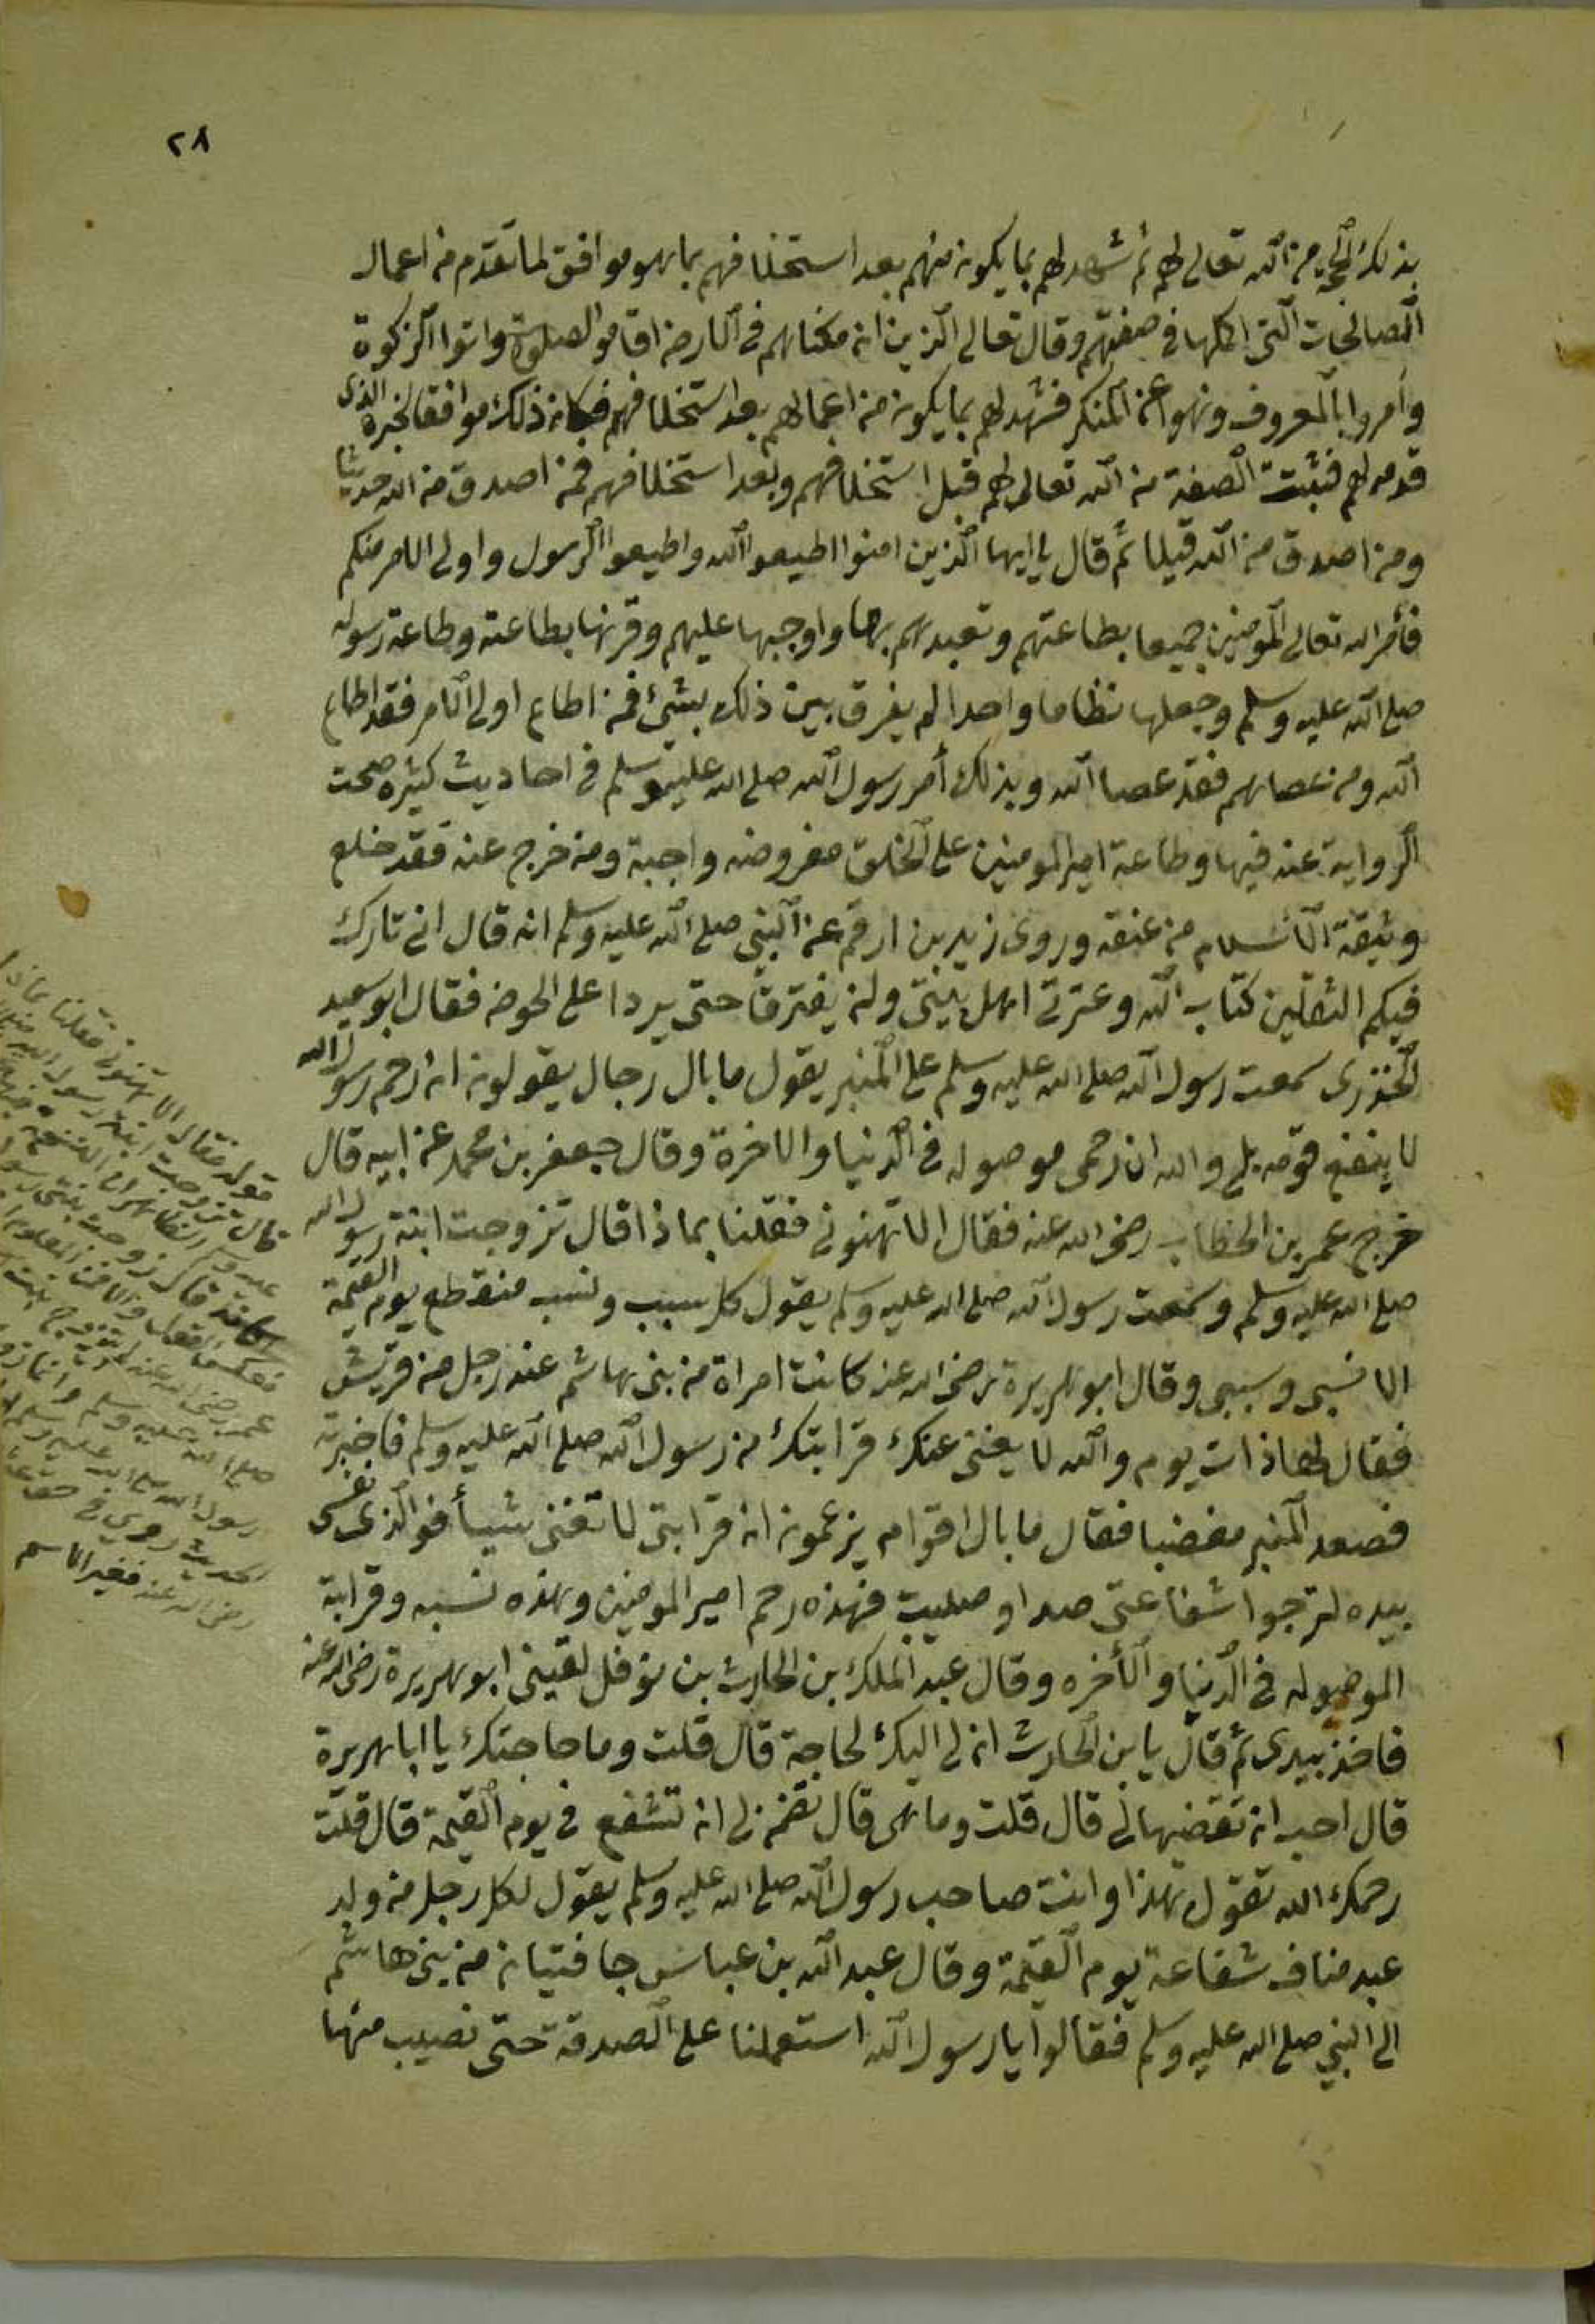 ٢٨
بذلك الحجة من الله تعالى لهم ثم شهد لهم بما يكون منهم بعد استخلافهم بما هو موافق لما تقدم من اعمال
الصالحات التى اكلها فى صفتهم وقال تعالى الذين ان مكناهم فى الارض اقاموا الصلوة واتوا الزكوة
وأمروا بالمعروف ونهوا عن المنكر فشهد لهم بما يكون من اعمالهم بعد استخلافهم فكان ذلك موافقا لخبره الذى
قدمه لهم فثبتت الصفة من الله تعالى لهم قبل استخلافهم وبعد استخلافهم فمن اصدق من الله حديثا
ومن اصدق من الله قيلا ثم قال يا ايها الذين امنوا اطيعوا الله واطيعوا الرسول واولى الامر منكم
فأمر الله تعالى المومنين جميعا بطاعتهم وتعبدهم بها واوجبها عليهم وقرنها بطاعته وطاعة رسوله
صلى الله عليه وسلم وجعلها نظاما واحدا لم يفرق بين ذلك بشئ فمن اطاع اولى الامر فقد اطاع
الله ومن عصاهم فقد عصا الله وبذلك أمر رسول الله صلى الله عليه وسلم فى احاديث كثيره صحت
الرواية عنه فيها وطاعة امير المومنين على الخلق مفروضه واجبة ومن خرج عنه فقد خلع
وثيقة الاسلام من عنقه وروى زيد بن ارقم عن النبى صلى الله عليه وسلم انه قال انى تارك
فيكم الثقلين كتاب الله وعترتى اهل بيتى ولن يفترقا حتى يردا على الحوض فقال ابو سعيد
الخدرى سمعت رسول الله صلى الله عليه وسلم على المنبر يقول ما بال رجال يقولون ان رحم رسول الله
لا ينفع قومه بلى والله ان رحمى موصوله فى الدنيا والاخرة وقال جعفر بن محمد عن ابيه قال
خرج عمر بن الخطاب رضى الله عنه فقال الا تهنونى فقلنا بماذا قال تزوجت ابنة رسول الله
صلى الله عليه وسلم وسمعت رسول الله صلى الله عليه وسلم يقول كل سبب ونسب منقطع يوم القيمة
الا نسبى وسببى وقال ابو هريرة رضى الله عنه كانت امراة من بنى هاشم عند رجل من قريش
فقال لها ذات يوم والله لا يغنى عنك قرابتك من رسول الله صلى الله عليه وسلم فاخبرته
فصعد المنبر مغضبا فقال ما بال اقوام يزعمون ان قرابتى لا تغنى شيأ فوالذى نفسى
بيده لترجوا شفاعتى صدا وصليب فهذه رحم امير المومنين وهذه نسبه وقرابة
الموصوله فى الدنيا والأخره وقال عبد الملك بن الحارث بن نوفل لقينى ابو هريرة رضى الله عنه
فاخذ بيدى ثم قال يا بن الحارث ان لى اليك لحاجة قال قلت وما حاجتك يا ابا هريرة
قال احب ان تقضيها لى قال قلت وما هى قال تضمن لى ان تشفع فى يوم القيمة قال قلت
رحمك الله تقول هذا وانت صاحب رسول الله صلى الله عليه وسلم يقول لكل رجل من ولد
عبد مناف شفاعة يوم القيمة وقال عبد الله بن عباس جا فتيان من بنى هاشم
الى النبى صلى الله عليه وسلم فقالوا يا رسول الله استعملنا على الصدقة حتى نصيب منها
قوله فقال الا تهنونى فقلنا بماذا
قال تزوجت ابنة رسول الله
عمر رضى الله عنه لم يتزوج بنت
صلى الله عليه وسلم وانما
رسول الله صلى الله عليه وسلم
رضى الله عنه فغير الاسم